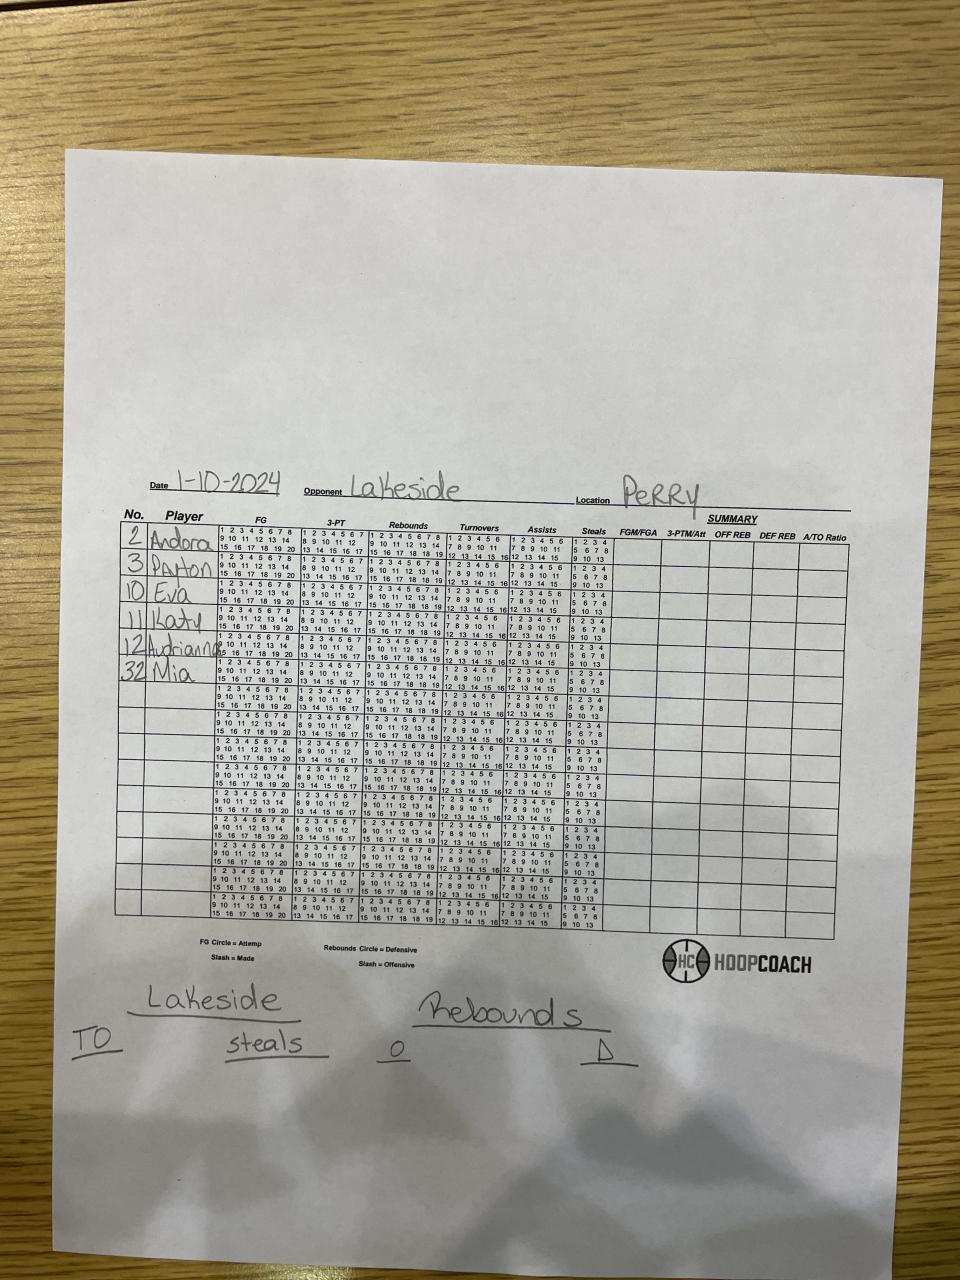 Date 1-10-2024 Opponent Lakeside Location PeRRY
No. Player FG 3-PT Rebounds Turnovers Assists Steals SUMMARY
FGM/FGA 3-PTM/Att OFF REB DEF REB A/TO Ratio
1 2 3 4 5 6 7 8 1 2 3 4 5 6 7 1 2 3 4 5 6 7 8 1 2 3 4 5 6 1 2 3 4 5 6 1 2 3 4
2 Andora 9 10 11 12 13 14 8 9 10 11 12 9 10 11 12 13 14 7 8 9 10 11 7 8 9 10 11 5 6 7 8
15 16 17 18 19 20 13 14 15 16 17 15 16 17 18 18 19 12 13 14 15 16 12 13 14 15 9 10 13
1 2 3 4 5 6 7 8 1 2 3 4 5 6 7 1 2 3 4 5 6 7 8 1 2 3 4 5 6 1 2 3 4 5 6 1 2 3 4
3 Payton 9 10 11 12 13 14 8 9 10 11 12 9 10 11 12 13 14 7 8 9 10 11 7 8 9 10 11 5 6 7 8
15 16 17 18 19 20 13 14 15 16 17 15 16 17 18 18 19 12 13 14 15 16 12 13 14 15 9 10 13
1 2 3 4 5 6 7 8 1 2 3 4 5 6 7 1 2 3 4 5 6 7 8 1 2 3 4 5 6 1 2 3 4 5 6 1 2 3 4
10 Eva 9 10 11 12 13 14 8 9 10 11 12 9 10 11 12 13 14 7 8 9 10 11 7 8 9 10 11 5 6 7 8
15 16 17 18 19 20 13 14 15 16 17 15 16 17 18 18 19 12 13 14 15 16 12 13 14 15 9 10 13
1 2 3 4 5 6 7 8 1 2 3 4 5 6 7 1 2 3 4 5 6 7 8 1 2 3 4 5 6 1 2 3 4 5 6 1 2 3 4
11 Katy 9 10 11 12 13 14 8 9 10 11 12 9 10 11 12 13 14 7 8 9 10 11 7 8 9 10 11 5 6 7 8
15 16 17 18 19 20 13 14 15 16 17 15 16 17 18 18 19 12 13 14 15 16 12 13 14 15 9 10 13
1 2 3 4 5 6 7 8 1 2 3 4 5 6 7 1 2 3 4 5 6 7 8 1 2 3 4 5 6 1 2 3 4 5 6 1 2 3 4
12 Audrianna 9 10 11 12 13 14 8 9 10 11 12 9 10 11 12 13 14 7 8 9 10 11 7 8 9 10 11 5 6 7 8
15 16 17 18 19 20 13 14 15 16 17 15 16 17 18 18 19 12 13 14 15 16 12 13 14 15 9 10 13
1 2 3 4 5 6 7 8 1 2 3 4 5 6 7 1 2 3 4 5 6 7 8 1 2 3 4 5 6 1 2 3 4 5 6 1 2 3 4
32 Mia 9 10 11 12 13 14 8 9 10 11 12 9 10 11 12 13 14 7 8 9 10 11 7 8 9 10 11 5 6 7 8
15 16 17 18 19 20 13 14 15 16 17 15 16 17 18 18 19 12 13 14 15 16 12 13 14 15 9 10 13
1 2 3 4 5 6 7 8 1 2 3 4 5 6 7 1 2 3 4 5 6 7 8 1 2 3 4 5 6 1 2 3 4 5 6 1 2 3 4
9 10 11 12 13 14 8 9 10 11 12 9 10 11 12 13 14 7 8 9 10 11 7 8 9 10 11 5 6 7 8
15 16 17 18 19 20 13 14 15 16 17 15 16 17 18 18 19 12 13 14 15 16 12 13 14 15 9 10 13
1 2 3 4 5 6 7 8 1 2 3 4 5 6 7 1 2 3 4 5 6 7 8 1 2 3 4 5 6 1 2 3 4 5 6 1 2 3 4
9 10 11 12 13 14 8 9 10 11 12 9 10 11 12 13 14 7 8 9 10 11 7 8 9 10 11 5 6 7 8
15 16 17 18 19 20 13 14 15 16 17 15 16 17 18 18 19 12 13 14 15 16 12 13 14 15 9 10 13
1 2 3 4 5 6 7 8 1 2 3 4 5 6 7 1 2 3 4 5 6 7 8 1 2 3 4 5 6 1 2 3 4 5 6 1 2 3 4
9 10 11 12 13 14 8 9 10 11 12 9 10 11 12 13 14 7 8 9 10 11 7 8 9 10 11 5 6 7 8
15 16 17 18 19 20 13 14 15 16 17 15 16 17 18 18 19 12 13 14 15 16 12 13 14 15 9 10 13
1 2 3 4 5 6 7 8 1 2 3 4 5 6 7 1 2 3 4 5 6 7 8 1 2 3 4 5 6 1 2 3 4 5 6 1 2 3 4
9 10 11 12 13 14 8 9 10 11 12 9 10 11 12 13 14 7 8 9 10 11 7 8 9 10 11 5 6 7 8
15 16 17 18 19 20 13 14 15 16 17 15 16 17 18 18 19 12 13 14 15 16 12 13 14 15 9 10 13
1 2 3 4 5 6 7 8 1 2 3 4 5 6 7 1 2 3 4 5 6 7 8 1 2 3 4 5 6 1 2 3 4 5 6 1 2 3 4
9 10 11 12 13 14 8 9 10 11 12 9 10 11 12 13 14 7 8 9 10 11 7 8 9 10 11 5 6 7 8
15 16 17 18 19 20 13 14 15 16 17 15 16 17 18 18 19 12 13 14 15 16 12 13 14 15 9 10 13
1 2 3 4 5 6 7 8 1 2 3 4 5 6 7 1 2 3 4 5 6 7 8 1 2 3 4 5 6 1 2 3 4 5 6 1 2 3 4
9 10 11 12 13 14 8 9 10 11 12 9 10 11 12 13 14 7 8 9 10 11 7 8 9 10 11 5 6 7 8
15 16 17 18 19 20 13 14 15 16 17 15 16 17 18 18 19 12 13 14 15 16 12 13 14 15 9 10 13
1 2 3 4 5 6 7 8 1 2 3 4 5 6 7 1 2 3 4 5 6 7 8 1 2 3 4 5 6 1 2 3 4 5 6 1 2 3 4
9 10 11 12 13 14 8 9 10 11 12 9 10 11 12 13 14 7 8 9 10 11 7 8 9 10 11 5 6 7 8
15 16 17 18 19 20 13 14 15 16 17 15 16 17 18 18 19 12 13 14 15 16 12 13 14 15 9 10 13
1 2 3 4 5 6 7 8 1 2 3 4 5 6 7 1 2 3 4 5 6 7 8 1 2 3 4 5 6 1 2 3 4 5 6 1 2 3 4
9 10 11 12 13 14 8 9 10 11 12 9 10 11 12 13 14 7 8 9 10 11 7 8 9 10 11 5 6 7 8
15 16 17 18 19 20 13 14 15 16 17 15 16 17 18 18 19 12 13 14 15 16 12 13 14 15 9 10 13
1 2 3 4 5 6 7 8 1 2 3 4 5 6 7 1 2 3 4 5 6 7 8 1 2 3 4 5 6 1 2 3 4 5 6 1 2 3 4
9 10 11 12 13 14 8 9 10 11 12 9 10 11 12 13 14 7 8 9 10 11 7 8 9 10 11 5 6 7 8
15 16 17 18 19 20 13 14 15 16 17 15 16 17 18 18 19 12 13 14 15 16 12 13 14 15 9 10 13
FG Circle = Attemp Rebounds Circle = Defensive
Slash = Made Slash = Offensive
HC HOOPCOACH
Lakeside Rebounds
TO steals O D